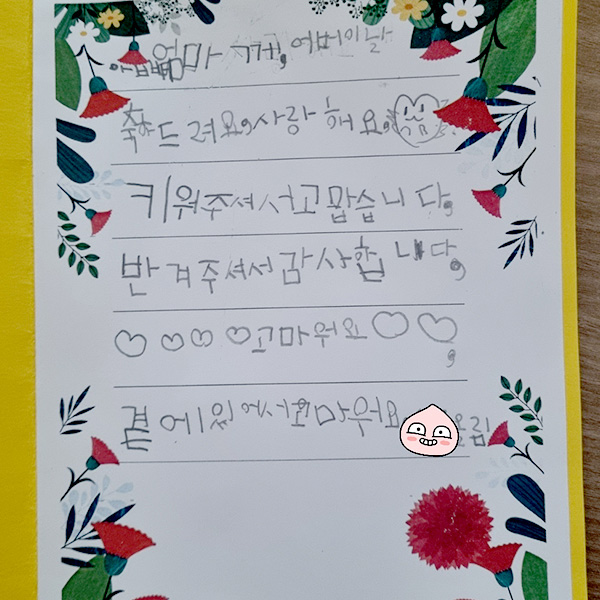 아빠엄마 께, 어버이날
축하드려요, 사랑해요,
키워주셔서고맙습니다,
반겨주셔서감사합니다,
고마워요,
곁에있어서고마워요 올림